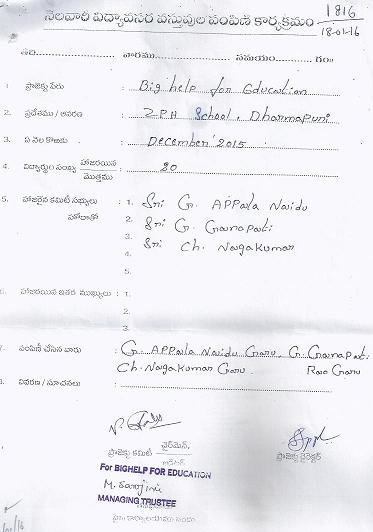 1816
18-01-16
నెలవారీ విద్యావసర వస్తువుల పంపిణీ కార్యక్రమం
తేది.................. వారము.................. సమయం.................. గం॥
1. ప్రాజెక్టు పేరు : Big help for Education
2. ప్రదేశము / ఆవరణ : ZPH School, Dharmapuri
3. ఏ నెల కొఱకు : December' 2015
4. విద్యార్థుల సంఖ్య హాజరయిన మొత్తము : 20
5. హాజరైన కమిటీ సభ్యులు : 1. Sri G. APPala Naidu
2. Sri G. Ganapati
3. Sri Ch. Nagakumar
4.
5.
6. హాజరయిన ఇతర ముఖ్యులు : 1.
2.
3.
7. పంపిణీ చేసిన వారు : G. APPala Naidu Garu, G. Ganapati Rao Garu
Ch. Nagakumar Garu
8. వివరణ / సూచనలు :
ప్రాజెక్టు కమిటీ ఛైర్మెన్,
ప్రాజెక్టు డైరెక్టర్
For BIGHELP FOR EDUCATION
M. Sarojini
MANAGING TRUSTEE